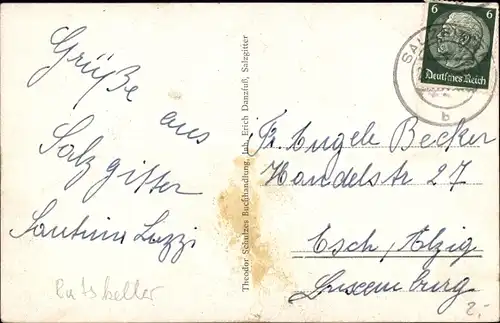 Grüße
aus
Salzgitter
Santina Luzzi
Ratskeller
Theodor Schulzes Buchhandlung, Inh. Erich Danzfuß, Salzgitter
6 6
Deutsches Reich
SALZ
b
Fr. Angele Becker
Handelstr 27
Esch /Alzig
Luxemburg
2,-